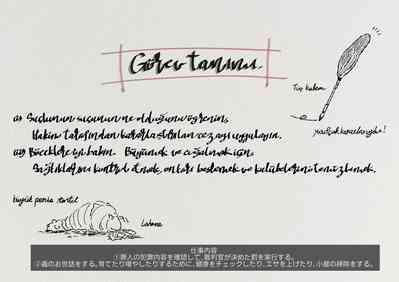 Görev tanımı
Tüy kalem
yazdıkça karalanıyoba!
(1) Suçlunun suçunun ne olduğunu öğrenin,
Hakim tarafından kararlaştırılan cezayı uygulayın.
(2) Böceklere iyi bakın. Büyümek ve çoğalmak için,
Sağlıklarını kontrol etmek, onları beslemek ve kulübelerini temizlemek.
büyük peria tırtıl
Lahana
仕事内容
①罪人の犯罪内容を確認して、裁判官が決めた罰を実行する。
②蟲のお世話をする。育てたり増やしたりするために、健康をチェックしたり、エサを上げたり、小屋の掃除をする。